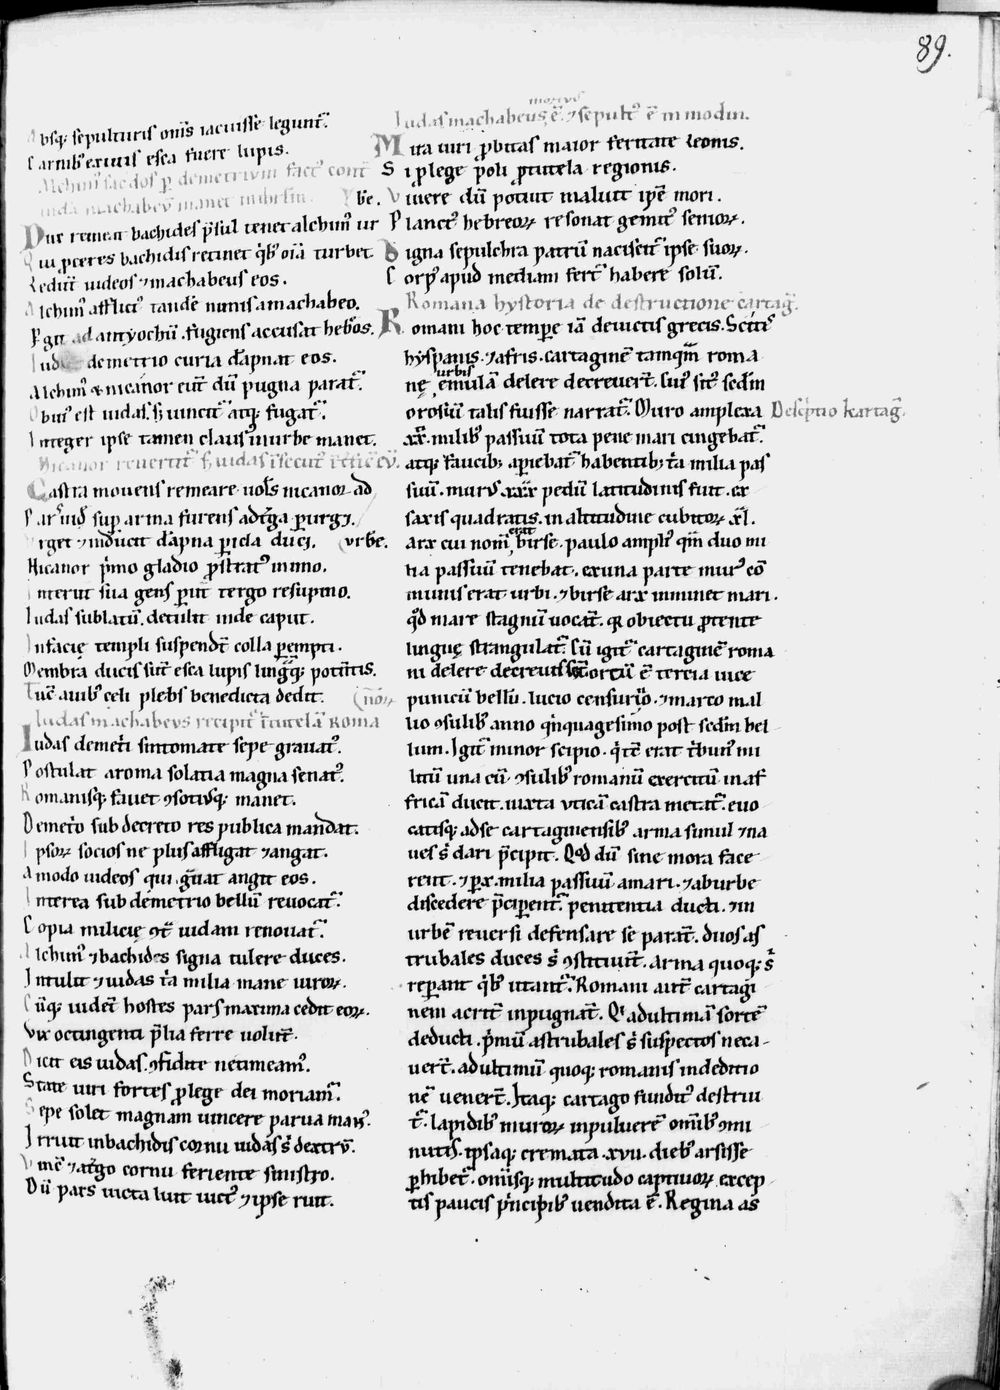 89.
Absq; sepulturis om̄s iacuisse legunt᷑.
Carnibꝰ exuuis esca fuere lupis.
Alchimꝰ sacdos ꝑ demetrium factꝰ cont᷑
iudā machabeū manet in ihrłm. Vrbe.
Dux remeat bachides p̄sul tenet alchimꝰ ur
Qui ꝓceres bachidis retinet q̄bꝰ oīa turbet
Redūt iudeos ⁊ machabeus eos.
Alchimꝰ afflictꝰ tandē nimis a machabeo.
Pgit ad antyochū. fugiens accusat hebręos.
Iude demetrio curia dāpnat eos.
Alchimꝰ & nicanor eunt dū pugna parat᷑.
Obuiꝰ est iudas. s; uincit᷑ atq; fugat᷑.
Integer ipse tamen clausꝰ in urbe manet.
Nicanor reuertit᷑ s; iudas īsecutꝰ īt̄fic̄ eū.
Castra mouens remeare uolēs nicanor ad
Par iud sup arma furens ad t̄ga ꝑurgꝫ.
Vrget ⁊ inducit dāpna ꝑicla duci. (vrbe.
Nicanor p̄mo gladio ꝓstratꝰ in imo.
Interiit sua gens ꝑiit tergo resupino.
Iudas sublatū. detulit inde caput.
In facie templi suspendt̄ colla ꝑempti.
Membra ducis sūt esca lupis linguāq; potentis.
Tūc auibꝰ celi plebs benedicta dedit. (noꝝ
Iudas machabeus recipit᷑ ī tutelā Roma
Iudas demet̄i sintomate sepe grauatꝰ.
Postulat a roma solatia magna senatꝰ.
Romanisq; fauet ꝯsotiusq; manet.
Demet̄io sub decreto res publica mandat.
Ipsoꝝ socios ne plus affligat ⁊ angat.
Amodo iudeos qui grāuat angit eos.
Interea sub demetrio bellū reuocat᷑.
Copia milicię ꝯt̄ iudam renouat᷑.
Alchimꝰ ⁊ bachides signa tulere duces.
Intulit ⁊ iudas t̄a milia mane uiroꝝ.
Cūq; uidet̄ hostes pars maxima cedit eoꝝ.
Vix octingenti p̄lia ferre uolūt.
Dicit eis iudas. ꝯfidite ne timeam᷒.
State uiri fortes ꝓ lege dei moriam᷑.
Sepe solet magnam uincere parua manꝰ.
Irruit in bachidis cornu iudas s; dextrū.
Vincē ⁊ at̄go cornu feriente sinistro.
Dū pars uicta luit uictꝰ ⁊ ipse ruit.
Iudas machabeus mortuꝰ ē. ⁊ sepultꝰ ē in modin.
Mira uiri ꝓbitas maior feritate leonis.
Si ꝓ lege ꝓ poli ꝓ tutela regionis.
Viuere dū potuit maluit ipse mori.
Planctꝰ hebreoꝝ resonat gemitꝰ senioꝝ.
Digna sepulchra patrū nacisetit᷑ ipse suoꝝ.
Corpꝰ apud mediam fert᷑ habere solū.
Romana hystoria de destructione cartag᷑.
Romani hoc tempore iā deuictis grecis. Scitꝰ
hyspanis. ⁊ afris. cartaginē tamquā roma
nę urbis emulā delere decreuert̄. Cuiꝰ sitꝰ scdm
orosiū talis fuisse narrat᷑. Muro amplexa Descriptio kartag᷑.
xx. milibꝰ passuū tota pene mari cingebat᷑.
atq; faucibꝫ aꝑiebat᷑ habentibꝫ t̄a milia pas
suū. murꝰ xxx pedū latitudinis fuit. ex
saxis quadratis. in altitudine cubitoꝝ xl.
arx cui nom̄ erat birse. paulo ampliꝰ qm̄ duo mi
lia passuū tenebat. ex una parte murꝰ cō
munis erat urbi. ⁊ birse arx imminet mari.
qd̄ mare stagnū uocat᷑. qr obiectu ꝓtente
linguę strangulat᷑. Cū igit᷑ cartaginē roma
ni delere decreuissent ortū ē tercia uice
punicū bellū. lucio censurino. ⁊ marco mal
lio ꝯsulibꝰ anno q̄nquagesimo post scdm bel
lum. Igit᷑ minor scipio. q̄ tc̄ erat t̄bunꝰ mi
litū una cū ꝯsulibꝰ romanū exercitū in af
fricā ducit. iuxta uticā castra metat᷑. euo
catisq; ad se cartaginensibꝰ arma simul ⁊ na
ues s; dari p̄cipit. Qd̄ dū sine mora face
rent. ⁊ ꝑ x. milia passuū a mari. ⁊ ab urbe
discedere p̄ciperent᷑. penitentia ducti. ⁊ in
urbē reuersi defensare se parat̄. duos as
trubales duces s; ꝯstituūt. Arma quoq; s;
reꝑant q̄bꝰ utant᷑. Romani aut̄ cartagi
nem acrit̄ inpugnāt. Qi ad ultimā sortē
deducti. p̄mū astrubales s; suspectos neca-
uert̄. ad ultimū quoq; romanis in deditio
nē uenert̄. Itaq; cartago fundit᷒ destrui
t᷑. lapidibꝰ muroꝝ in puluerē om̄ibꝰ ꝯmi
nutis. ipsaq; cremata .xvii. diebꝰ arsisse
ꝑhibet᷑. om̄isq; multitudo captiuoꝝ. excep
tis paucis p̄ncipibꝰ uendita ē. Regina as